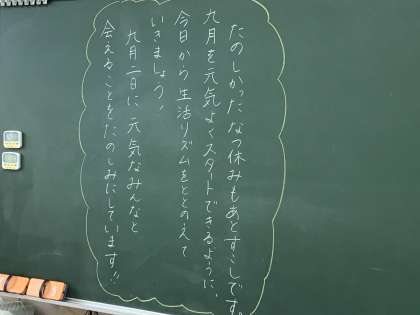 たのしかったなつ休みもあとすこしです。
九月を元気よくスタートできるように、
今日から生活リズムをととのえて
いきましょう。
九月二日に元気なみんなと
会えることをたのしみにしています!!